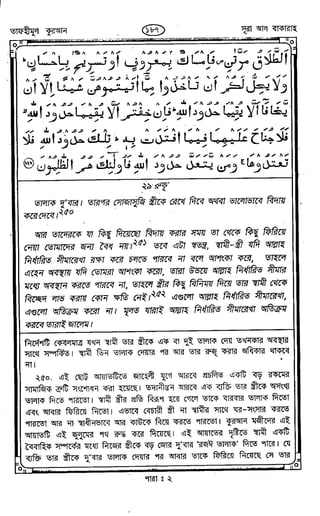 তাফহীমুল কুরআন
১৮৭
সূরা আল বাকারাহ
اَلطَّلَاقُ مَرَّتٰنِ فَاِمْسَاكٌۢ بِمَعْرُوْفٍ اَوْ تَسْرِيْحٌۢ بِاِحْسَانٍ
وَلَا يَحِلُّ لَكُمْ اَنْ تَاْخُذُوْا مِمَّآ اٰتَيْتُمُوْهُنَّ شَيْئًا اِلَّآ اَنْ
يَّخَافَآ اَلَّا يُقِيْمَا حُدُوْدَ اللهِ فَاِنْ خِفْتُمْ اَلَّا يُقِيْمَا حُدُوْدَ اللهِ
فَلَا جُنَاحَ عَلَيْهِمَا فِيْمَا افْتَدَتْ بِهٖ تِلْكَ حُدُوْدُ اللهِ فَلَا
تَعْتَدُوْهَا وَمَنْ يَّتَعَدَّ حُدُوْدَ اللهِ فَاُولٰٓئِكَ هُمُ الظّٰلِمُوْنَ
২৯ রুকূ'
তালাক দু'বার। তারপর সোজাসুজি স্ত্রীকে রেখে দিবে অথবা ভালোভাবে বিদায়
করে দেবে।২৫০
আর তাদেরকে যা কিছু দিয়েছো বিদায় করার সময় তা থেকে কিছু ফিরিয়ে
নেয়া তোমাদের জন্য বৈধ নয়।২৫১ তবে এটা স্বতন্ত্র, স্বামী-স্ত্রী যদি আল্লাহ
নির্ধারিত সীমারেখা রক্ষা করে চলতে পারবে না বলে আশংকা করে, তাহলে
এহেন অবস্থায় যদি তোমরা আশংকা করো, তারা উভয়ে আল্লাহ নির্ধারিত সীমার
মধ্যে অবস্থান করতে পারবে না, তাহলে স্ত্রীর কিছু বিনিময় দিয়ে তার স্বামী থেকে
বিচ্ছেদ লাভ করায় কোন ক্ষতি নেই।২৫২ এগুলো আল্লাহ নির্ধারিত সীমারেখা,
এগুলো অতিক্রম করো না। মূলত যারাই আল্লাহ নির্ধারিত সীমারেখা অতিক্রম
করবে তারাই জালেম।
নির্দেশটি কেবলমাত্র যখন স্বামী তার স্ত্রীকে এক বা দুই তালাক দেয় তখনকার অবস্থার
সাথে সম্পর্কিত। স্বামী তিন তালাক দেয়ার পর আর তার রুজু করার অধিকার থাকবে
না।
২৫০. এই ছোট্ট আয়াতটিতে জাহেলী যুগে আরবে প্রচলিত একটি বড় রকমের
সামাজিক ত্রুটি সংশোধন করা হয়েছে। তদানীন্তন আরবে এক ব্যক্তি তার স্ত্রীকে অসংখ্য
তালাক দিতে পারতো। স্বামী স্ত্রীর প্রতি বিরূপ হয়ে গেলে তাকে বারবার তালাক দিতো
এবং আবার ফিরিয়ে নিতো। এভাবে বেচারী স্ত্রী না স্বামীর সাথে ঘর-সংসার করতে
পারতো আর না স্বাধীনভাবে আর কাউকে বিয়ে করতে পারতো। কুরআন মজীদের এই
আয়াতটি এই জুলুমের পথ রুদ্ধ করে দিয়েছে। এই আয়াতের দৃষ্টিতে স্বামী একটি
বৈবাহিক সম্পর্কের মধ্যে নিজের স্ত্রীকে বড় জোর দু'বার 'রজঈ তালাক' দিতে পারে। যে
ব্যক্তি তার স্ত্রীকে দু'বার তালাক দেয়ার পর আবার তাকে ফিরিয়ে নিয়েছে সে তার
পারা : ২